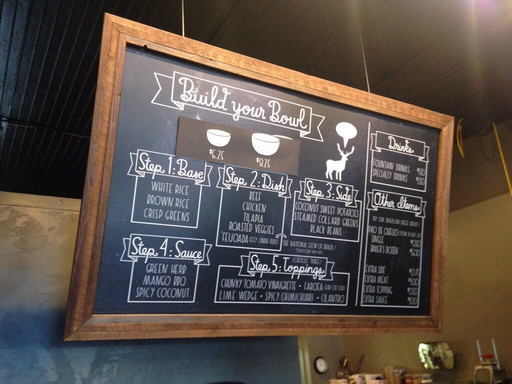 Build your Bowl
Step 1: Base
WHITE RICE
BROWN RICE
CRISP GREENS
Step 2: Dish
BEEF
CHICKEN
TILAPIA
ROASTED VEGGIES
Step 3: Side
COCONUT SWEET POTATOES
STEAMED COLLARD GREENS
BLACK BEANS
Step 4: Sauce
GREEN HERB
MANGO BBQ
SPICY COCONUT
Step 5: Toppings
CHUNKY TOMATO VINAIGRETTE • FAROFA
LIME WEDGE • SPICY CHIMICHURRI • CILANTRO
Drinks
FOUNTAIN DRINKS
SPECIALTY DRINKS
Other Items
SINGLE
EXTRA SIDE
EXTRA MEAT
EXTRA TOPPING
EXTRA SAUCE